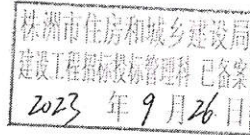 株洲市住房和城乡建设局
建设工程招标投标管理科 已备案
2023 年 9 月 26 日